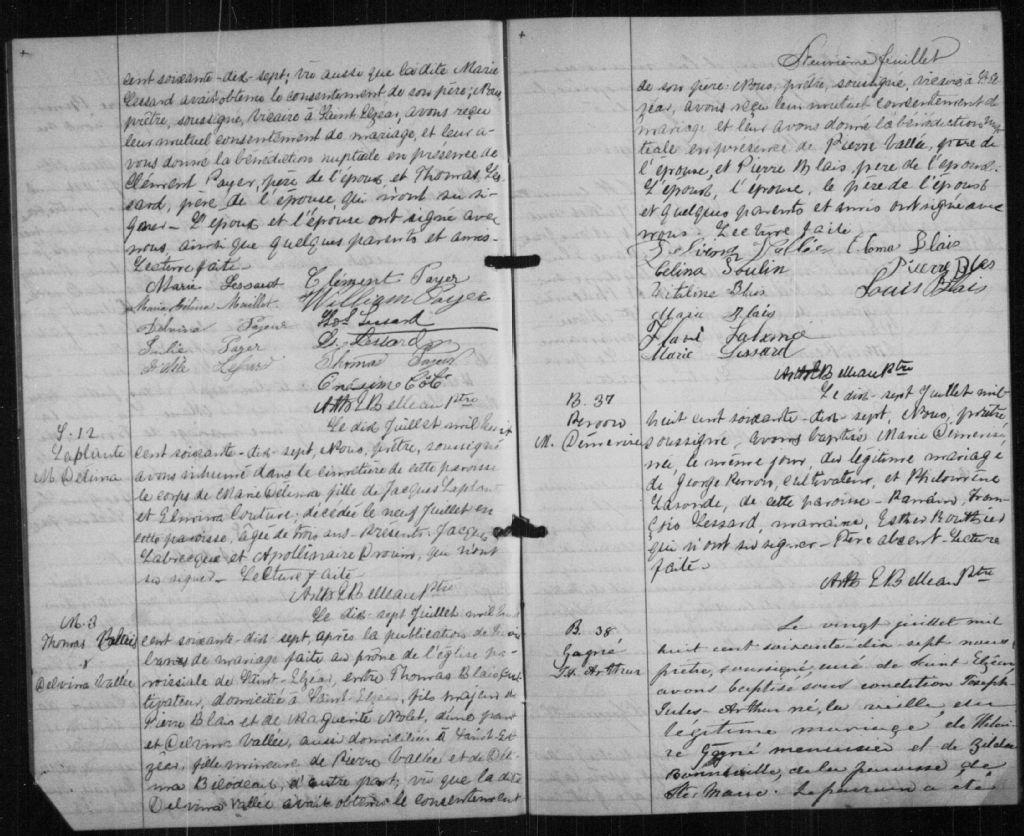 cent soixante-dix-sept; vu aussi que la dite Marie
Lessard avait obtenu le consentement de son père; Nous,
prêtre, soussigné, vicaire à Saint Elzéar, avons reçu
leur mutuel consentement de mariage, et leur a-
vons donné la bénédiction nuptiale en présence de
Clément Payer, père de l'époux et Thomas Les-
sard, père de l'épouse, qui n'ont su si-
gner - L'époux et l'épouse ont signé avec
nous, ainsi que quelques parents et amis-
Lecture faite-
Marie Lessard Clément Payer
William Payer
Delvina Payeur Ths Lessard
Julie Payer Ls. Lessard
Thomas Payeur
Onésime Côté
Arth E Belleau Ptre
S. 12
Laplante
M. Delima
Le dix Juillet mil huit
cent soixante-dix-sept, Nous, prêtre, soussigné
avons inhumé dans le cimetière de cette paroisse
le corps de Marie Délima fille de Jacques Laplante
et Elmina Couture, décédée le neuf Juillet en
cette paroisse, âgée de trois ans - Présents, Jacques
Labrecque et Apollinaire Drouin, qui n'ont
su signer - Lecture faite-
Arth E Belleau Ptre
M. 3
Thomas Blais
&
Delvina Vallée
Le dix-sept Juillet mil huit
cent soixante-dix-sept, après la publication de trois
bans de mariage faite au prône de l'église pa-
roissiale de Saint-Elzéar, entre Thomas Blais, cul-
tivateur, domicilié à Saint-Elzéar, fils majeur de
Pierre Blais et de Marguerite Nolet, d'une part
et Delvina Vallée, aussi domiciliée à Saint-El-
zéar, fille mineure de Pierre Vallée et de Dél-
ina Bilodeau, d'autre part; vu que la dite
Delvina Vallée avait obtenu le consentement
Neuvième feuillet
de son père. Nous, prêtre, soussigné, vicaire à St. El-
zéar, avons reçu leur mutuel consentement de
mariage et leur avons donné la bénédiction nup-
tiale en présence de Pierre Vallée, père de
l'épouse, et Pierre Blais, père de l'époux.
L'époux, l'épouse, le père de l'époux
et quelques parents et amis ont signé avec
nous. Lecture faite
Delvina Vallée Thomas Blais
Celina Poulin Pierre Blais
Vitaline Blais Louis Blais
Marie Blais
Marie Lessard
Arth E Belleau Ptre
B. 37
Perron
M. Démerise
Le dix-sept Juillet mil
huit cent soixante-dix-sept, Nous, prêtre
soussigné, avons baptisé Marie Démerise,
née le même jour, du légitime mariage
de George Perron, cultivateur, et Philomène
Lavoie, de cette paroisse - Parrain, Fran-
çois Lessard, marraine, Esther Bouthier
qui n'ont su signer - Père absent - Lecture
faite-
Arth E Belleau Ptre
B. 38
Gagné
Js. Arthur
Le vingt juillet mil
huit cent soixante-dix sept nous,
prêtre, soussigné, curé de Saint Elzéar
avons baptisé sous condition Joseph-
Jules-Arthur né, la veille, du
légitime mariage de Hilai-
re Gagné menuisier et de Zélda
Bonneville, de la paroisse de
Ste. Marie. Le parrain a été